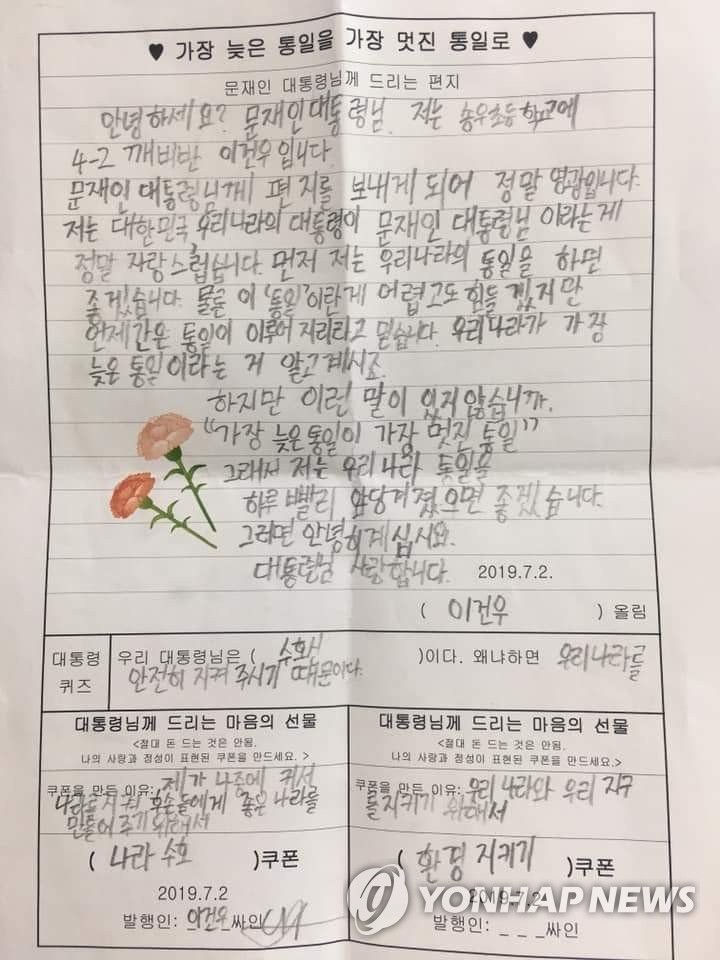 ♥ 가장 늦은 통일을 가장 멋진 통일로 ♥
문재인 대통령님께 드리는 편지
안녕하세요? 문재인대통령님. 저는 송우초등학교에
4-2 깨비반 이건우입니다.
문재인 대통령님께 편지를 보내게 되어 정말 영광입니다.
저는 대한민국 우리나라의 대통령이 문재인 대통령님 이라는게
정말 자랑스럽습니다. 먼저 저는 우리나라의 통일을 하면
좋겠습니다. 물론 이 '통일'이란게 어렵고도 힘들겠지만
언제간은 통일이 이루어지리라고 믿습니다. 우리나라가 가장
늦은 통일이라는 거 알고계시죠.
하지만 이런 말이 있지않습니까.
"가장 늦은통일이 가장 멋진 통일"
그래서 저는 우리나라 통일을
하루 빨리 앞당겨졌으면 좋겠습니다.
그러면 안녕히계십시요.
대통령님 사랑합니다. 2019.7.2.
( 이건우 ) 올림
대통령
퀴즈
우리 대통령님은 ( 수호신 )이다. 왜냐하면 우리나라를
안전히 지켜 주시기 때문이다.
대통령님께 드리는 마음의 선물
<절대 돈 드는 것은 안됨.
나의 사랑과 정성이 표현된 쿠폰을 만드세요. >
쿠폰을 만든 이유: 제가 나중에 커서
나라를 지켜 후손들에게 좋은 나라를
만들어 주기 위해서
( 나라 수호 )쿠폰
2019.7.2
발행인: 이건우 싸인
대통령님께 드리는 마음의 선물
<절대 돈 드는 것은 안됨.
나의 사랑과 정성이 표현된 쿠폰을 만드세요. >
쿠폰을 만든 이유: 우리 나라와 우리 지구
를지키기 위해서
( 환경 지키기 )쿠폰
2019.7.2
발행인: _ _ _싸인
YONHAP NEWS